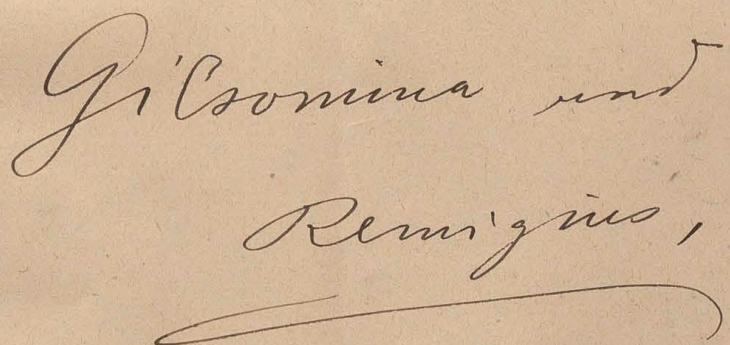 Gilsomina und
Remigius,